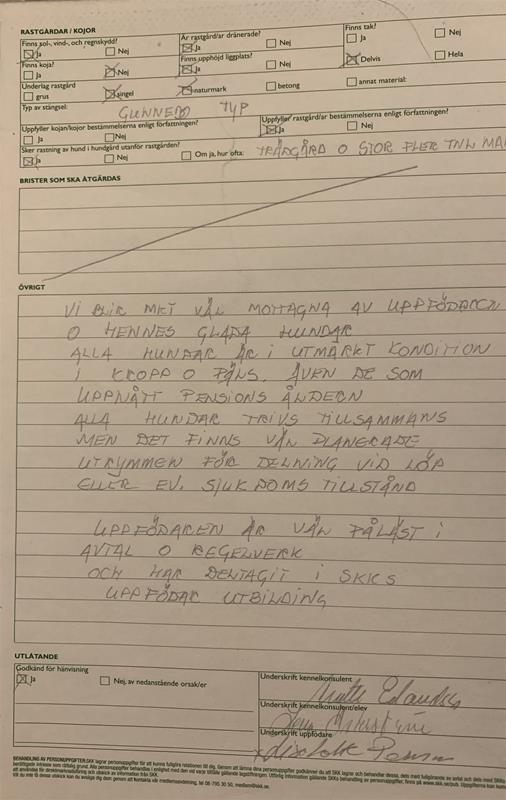 RASTGÅRDAR / KOJOR
Finns sol-, vind-, och regnskydd? Är rastgård/ar dränerade? Finns tak?
Ja Nej Ja Nej Ja Nej
Finns koja? Finns upphöjd liggplats? Delvis Hela
Ja Nej Ja Nej
Underlag rastgård
grus singel naturmark betong annat material:
Typ av stängsel: GUNNEBO TYP
Uppfyller kojan/kojor bestämmelserna enligt författningen? Uppfyller rastgård/ar bestämmelserna enligt författningen?
Ja Nej Ja Nej
Sker rastning av hund i hundgård utanför rastgården?
Ja Nej Om ja, hur ofta: TRÄDGÅRD O STOR FLER
BRISTER SOM SKA ÅTGÄRDAS
ÖVRIGT
VI BLIR MKT VÄL MOTTAGNA AV UPPFÖDAREN
O HENNES GLADA HUNDAR
ALLA HUNDAR ÄR I UTMÄRKT KONDITION
I KROPP O PÄLS. ÄVEN DE SOM
UPPNÅTT PENSIONS ÅLDERN
ALLA HUNDAR TRIVS TILLSAMMANS
MEN DET FINNS VÄL PLANERADE
UTRYMMEN FÖR DELNING VID LÖP
ELLER EV. SJUKDOMS TILLSTÅND
UPPFÖDAREN ÄR VÄL PÅLÄST I
AVTAL O REGELVERK
OCH HAR DELTAGIT I SKKS
UPPFÖDAR UTBILDING
UTLÅTANDE
Godkänd för hänvisning
Ja Nej, av nedanstående orsak/er
Underskrift kennelkonsulent
Underskrift kennelkonsulent/elev
Underskrift uppfödare
BEHANDLING AV PERSONUPPGIFTER